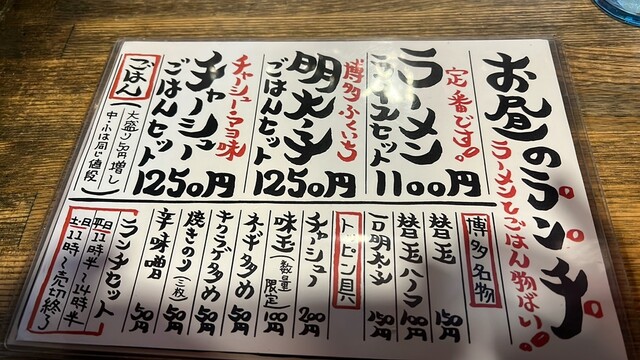 お昼のランチ
ラーメンとごはん物ばい!
定番です!
ラーメン
ライスセット
1100円
博多ふくいち
明太子
ごはんセット
1250円
チャーシュー・マヨ味
チャーシュー
ごはんセット
1250円
ごはん
大盛り50円増し
中・小は同じ値段
博多名物
替玉 150円
替玉ハーフ 100円
一口明太子 150円
トッピン具
チャーシュー 200円
味玉(数量限定) 100円
ネギ多め 50円
キクラゲ多め 50円
焼きのり(三枚) 50円
辛味噌 50円
ランチセット
平日 11時半~14時半
土・日 11時~売切終了